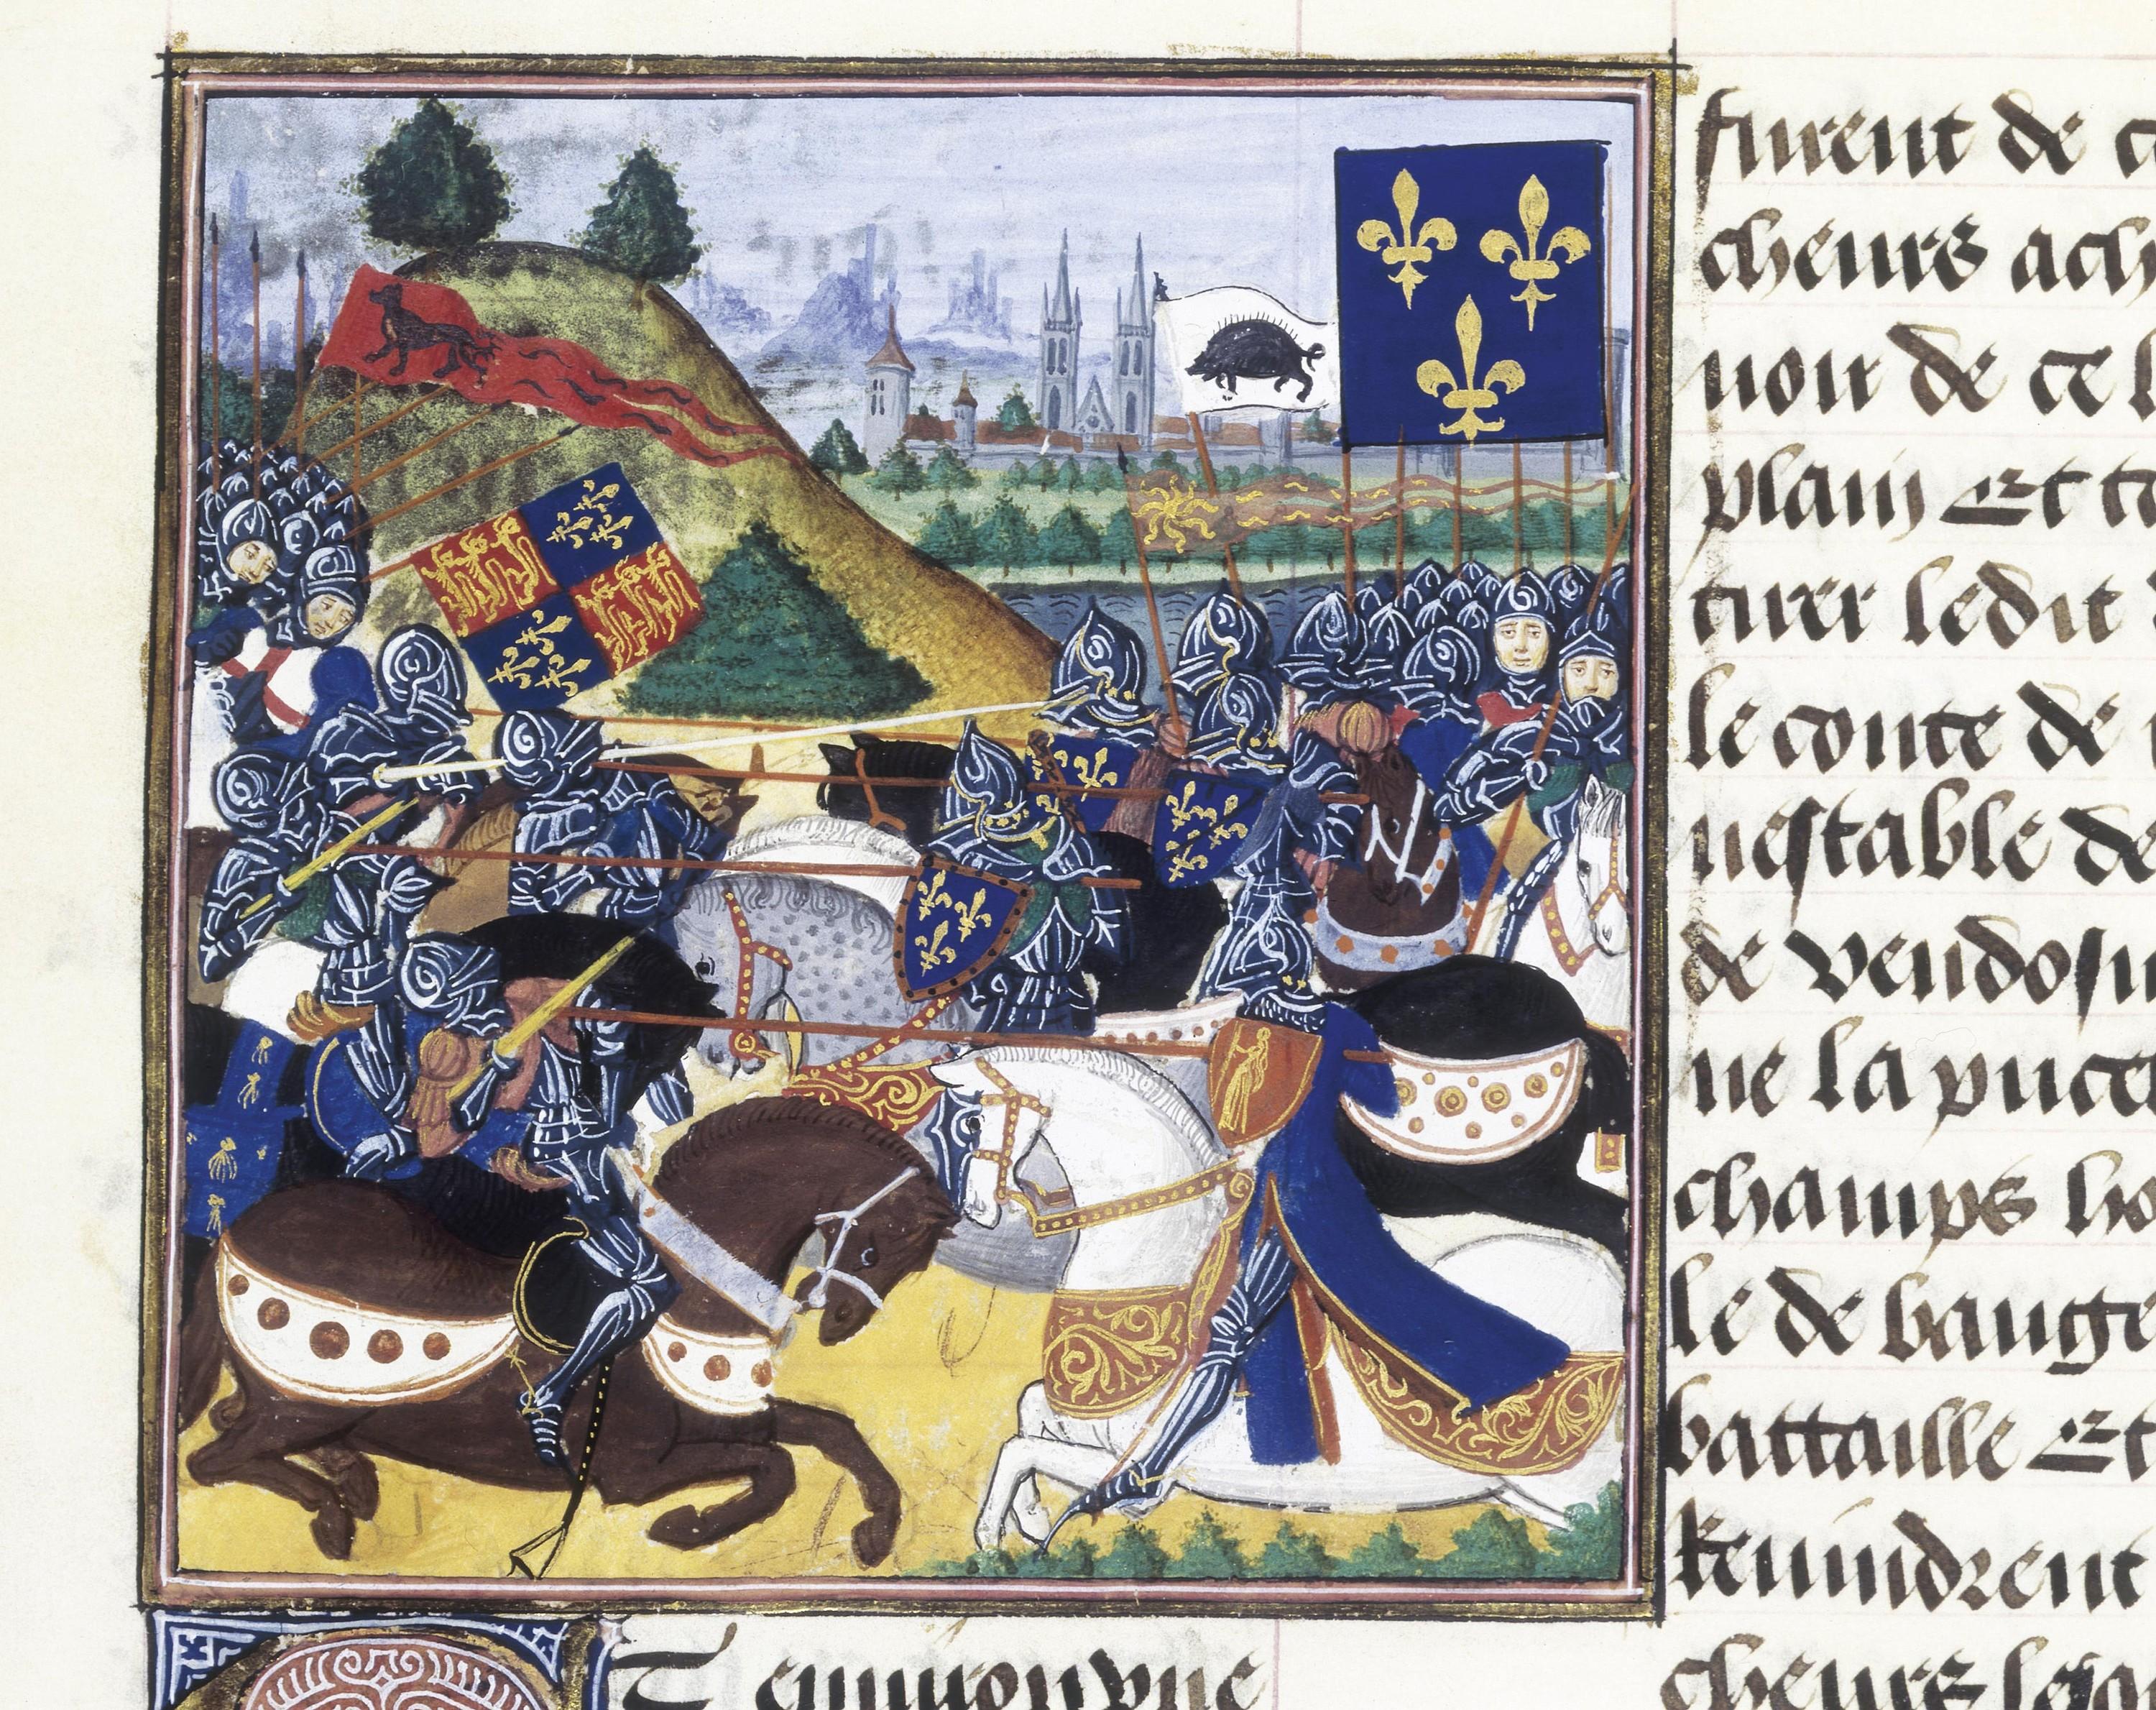 furent de
cheurs ach
uoir de ce
plain Et
tirer ledit
le conte de
nestable de
de vendosm
ne la puce
champs ho
le de bauge
battaille Et
Revindrent
cheurs
T enuiron vne